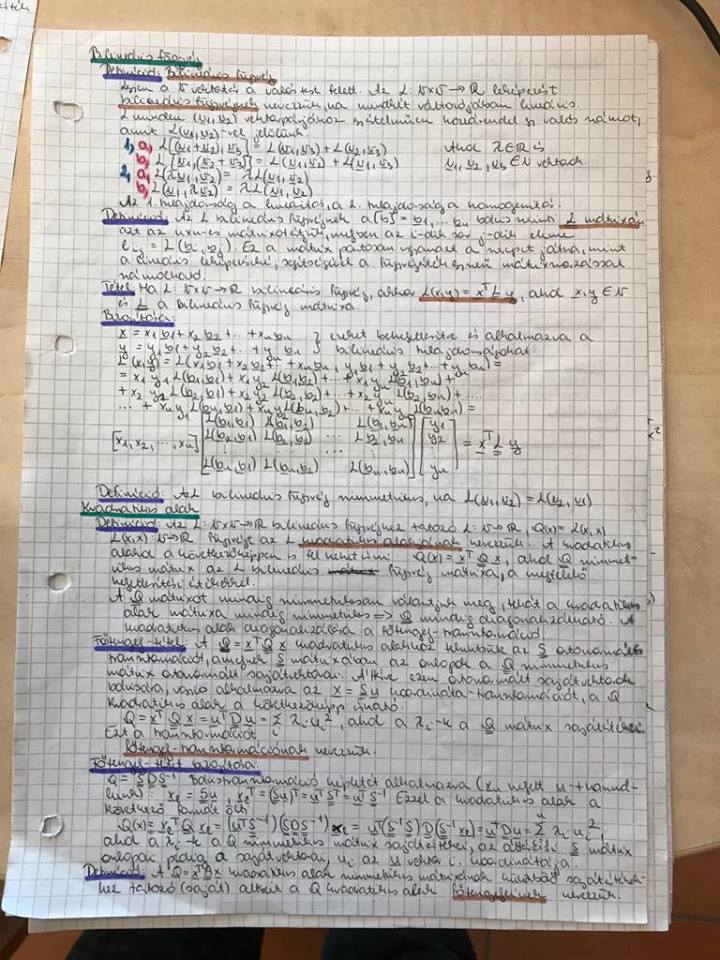 Bilineáris függvény
Definíció: Bilineáris függvény
Legyen a V vektortér a valós test felett. Az L: V×V → ℝ leképezést
bilineáris függvénynek nevezzük, ha mindkét változójában lineáris.
L minden (v₁, v₂) vektorpárjához egyértelműen hozzárendel egy valós számot,
amit L(v₁, v₂)-vel jelölünk.
1, a, L[(v₁+v₂), v₃] = L(v₁, v₃) + L(v₂, v₃) Ahol λ∈ℝ és
b, L[v₁, (v₂+v₃)] = L(v₁, v₂) + L(v₁, v₃) v₁, v₂, v₃ ∈ V vektorok
2, a, L(λv₁, v₂) = λL(v₁, v₂)
b, L(v₁, λv₂) = λL(v₁, v₂)
Az 1. tulajdonság a linearitás, a 2. tulajdonság a homogenitás.
Definíció: Az L bilineáris függvénynek a [b] = b₁, ... bₙ bázis szerinti L mátrixán
azt az n×n-es mátrixot értjük, melyben az i-dik sor j-dik eleme
lᵢⱼ = L(bᵢ, bⱼ). Ez a mátrix pontosan ugyanazt a szerepet játssza, mint
a lineáris leképezésnél, segítségével a függvényérték egyszerű mátrixszorzással
számolható.
Tétel: Ha L: V×V → ℝ bilineáris függvény, akkor L(x, y) = xᵀ L y, ahol x, y ∈ V
és L a bilineáris függvény mátrixa.
Bizonyítása:
x = x₁b₁ + x₂b₂ + ... + xₙbₙ } ezeket behelyettesítve és alkalmazva a
y = y₁b₁ + y₂b₂ + ... + yₙbₙ } bilineáris tulajdonságokat.
L(x, y) = L(x₁b₁ + x₂b₂ + ... + xₙbₙ, y₁b₁ + y₂b₂ + ... + yₙbₙ) =
= x₁y₁ L(b₁, b₁) + x₁y₂ L(b₁, b₂) + ... + x₁yₙ L(b₁, bₙ) +
+ x₂y₁ L(b₂, b₁) + x₂y₂ L(b₂, b₂) + ... + x₂yₙ L(b₂, bₙ) + ...
... + xₙy₁ L(bₙ, b₁) + xₙy₂ L(bₙ, b₂) + ... + xₙyₙ L(bₙ, bₙ) =
L(b₁, b₁) L(b₁, b₂) L(b₁, bₙ) y₁
[x₁, x₂, ..., xₙ] L(b₂, b₁) L(b₂, b₂) ... L(b₂, bₙ) y₂ = xᵀ L y
L(bₙ, b₁) L(bₙ, b₂) L(bₙ, bₙ) yₙ
Definíció: Az L bilineáris függvény szimmetrikus, ha L(v₁, v₂) = L(v₂, v₁)
Kvadratikus alak
Definíció: Az L: V×V → ℝ bilineáris függvényhez tartozó L: V → ℝ, Q(x) = L(x, x)
L(x, x) V → ℝ függvényt az L kvadratikus alakjának nevezzük. A kvadratikus
alakot a következőképpen is fel lehet írni: Q(x) = xᵀ Q x, ahol Q szimmet-
rikus mátrix az L bilineáris függvény mátrixa, a megfelelő
helyettesítési értékkel.
A Q mátrixot mindig szimmetrikusan választjuk meg, tehát a kvadratikus
alak mátrixa mindig szimmetrikus => Q mindig diagonalizálható. A
kvadratikus alak diagonalizálása a főtengely-transzformáció.
Főtengely-tétel: A Q = xᵀ Q x kvadratikus alakhoz létezik az S ortonormált
transzformáció, amelynek S mátrixában az oszlopok a Q szimmetrikus
mátrix ortonormált sajátvektorai. Áttérve ezen ortonormált sajátvektorok
bázisára, vagyis alkalmazva az x = S u koordináta-transzformációt, a Q
kvadratikus alak a következőképp írható:
Q = xᵀ Q x = uᵀ D u = Σ λᵢ uᵢ², ahol a λᵢ-k a Q mátrix sajátértékei
Ezt a transzformációt
főtengely-transzformációnak nevezzük.
Főtengely-tétel bizonyítása:
Q = S D S⁻¹ bázistranszformáció képletét alkalmazva
= S u, = (S u)ᵀ = uᵀ Sᵀ = uᵀ S⁻¹ Ezzel a kvadratikus alak a
következő formát ölti
Q(x) = Q = (uᵀ S⁻¹)(S D S⁻¹) = uᵀ (S⁻¹ S) D (S⁻¹ ) = uᵀ D u = Σ λᵢ uᵢ²,
ahol a λᵢ-k a Q szimmetrikus mátrix sajátértékei, az áttérési S mátrix
oszlopai pedig a sajátvektorai, uᵢ az u vektor i. koordinátája.
Definíció: A Q = xᵀ Q x kvadratikus alak szimmetrikus mátrixának különböző sajátértékei-
hez tartozó (saját) altereit a Q kvadratikus alak főtengelyeinek nevezzük.